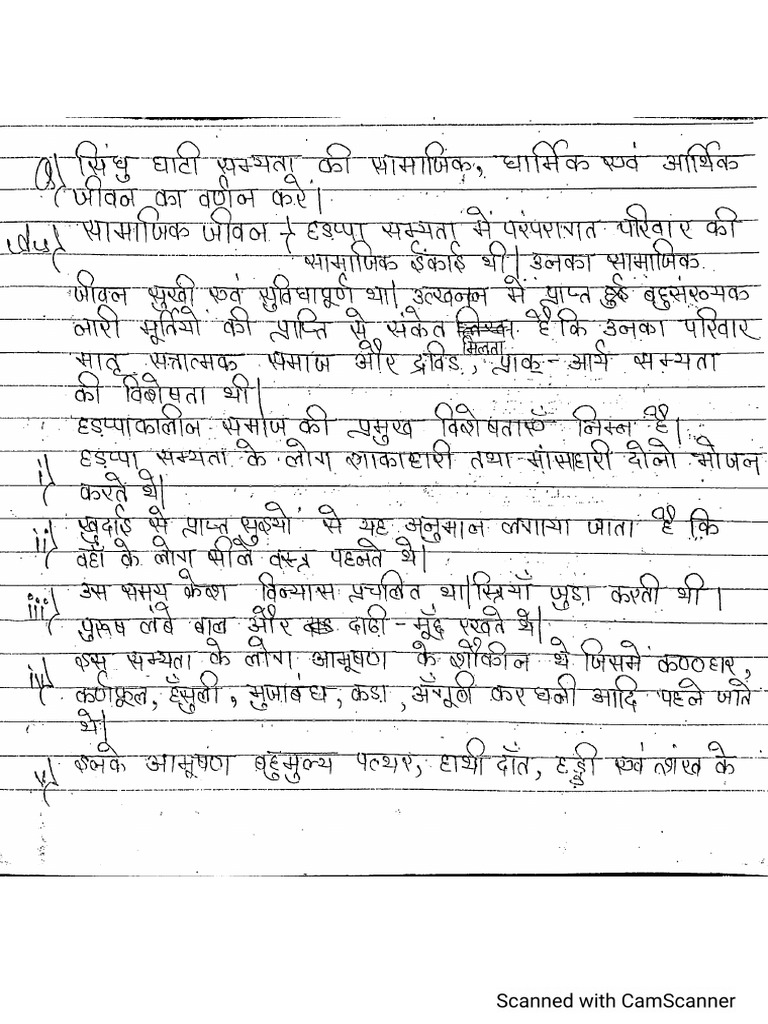 Q) सिंधु घाटी सभ्यता की सामाजिक, धार्मिक एवं आर्थिक
जीवन का वर्णन करें।
Ans) सामाजिक जीवन :- हड़प्पा सभ्यता में परंपरागत परिवार की
सामाजिक ईकाई थी। उनका सामाजिक
जीवन सुखी एवं सुविधापूर्ण था। उत्खनन में प्राप्त हुई बहुसंख्यक
नारी मूर्तियों की प्राप्ति से संकेत मिलता है कि उनका परिवार
मातृ सत्तात्मक समाज और द्रविड़, प्राक् - आर्य सभ्यता
की विशेषता थी।
हड़प्पाकालीन समाज की प्रमुख विशेषताएँ निम्न है।
i) हड़प्पा सभ्यता के लोग शाकाहारी तथा मांसाहारी दोनो भोजन
करते थे।
ii) खुदाई से प्राप्त सुइयों से यह अनुमान लगाया जाता है कि
वहाँ के लोग सीले वस्त्र पहनते थे।
iii) उस समय केश विन्यास प्रचलित था। स्त्रियाँ जुड़ा करती थी।
पुरूष लंबे बाल और दाढ़ी - मूँछ रखते थे।
iv) इस सभ्यता के लोग आभूषण के शौकीन थे जिसमें कण्ठहार,
कर्णफूल, हँसुली, भुजाबंध, कड़ा, अँगूठी करधनी आदि पहने जाते
थे।
v) इनके आभूषण बहुमुल्य पत्थर, हाथी दाँत, हड्डी एवं शंख के
Scanned with CamScanner